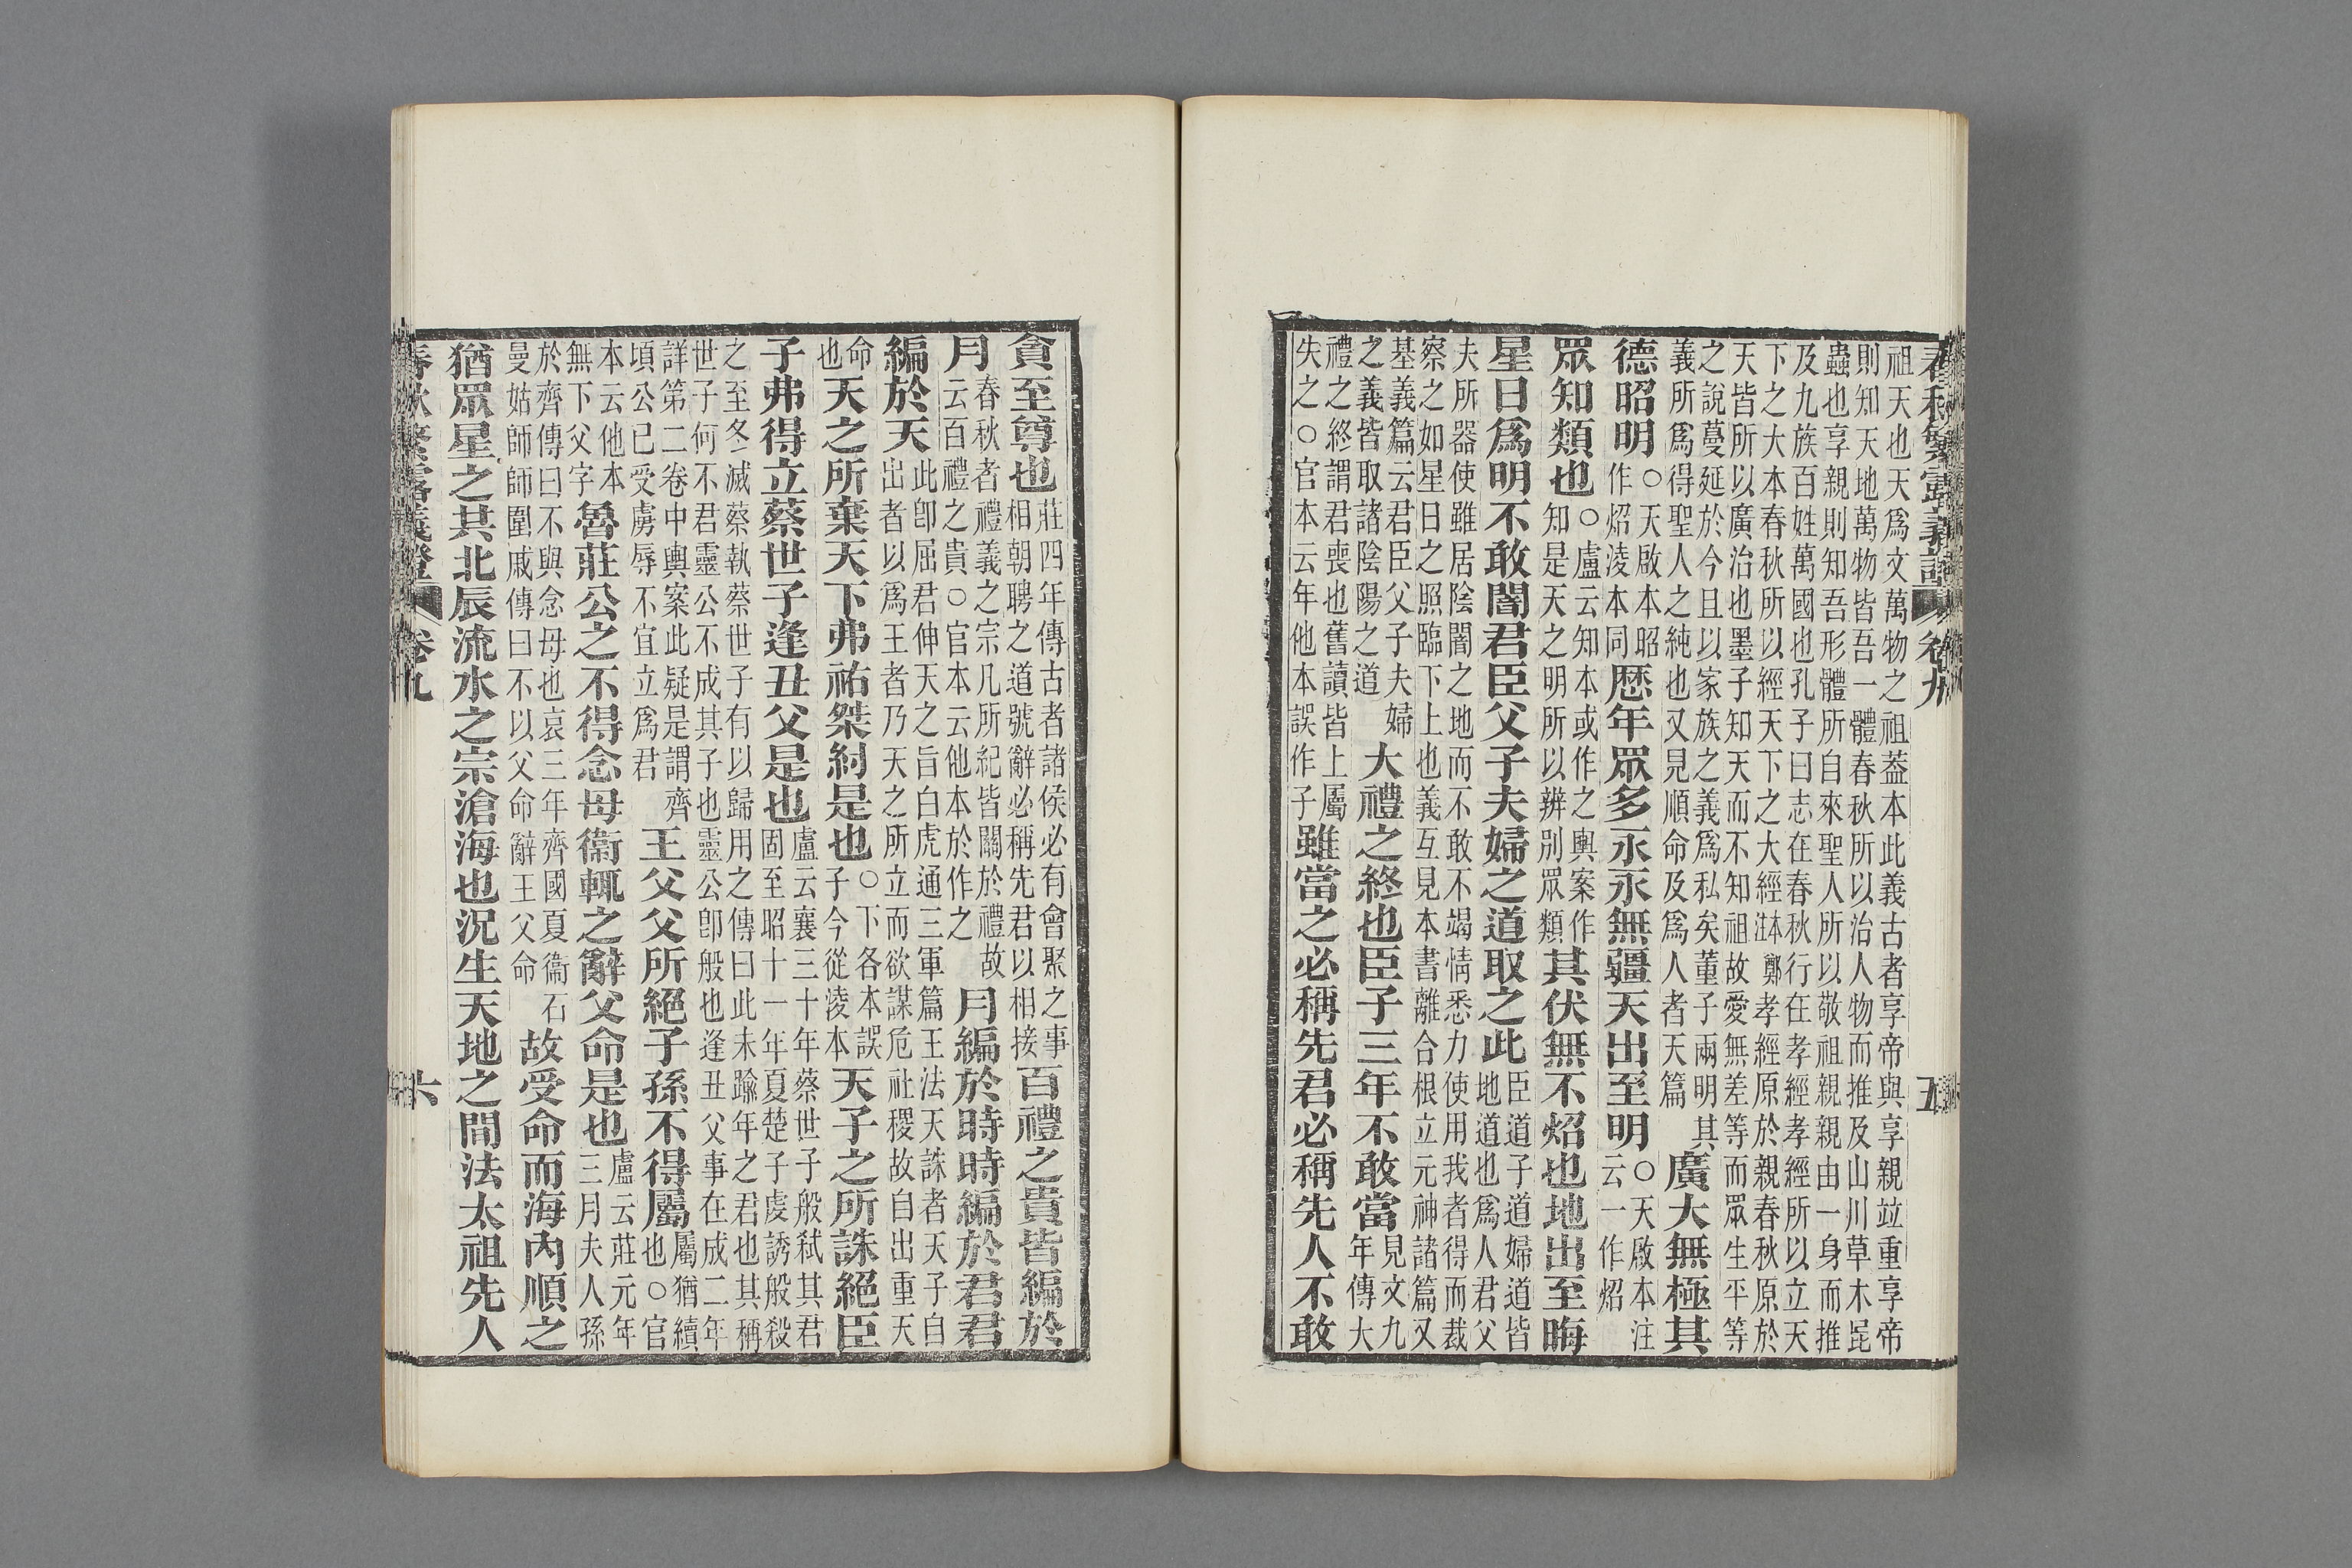 春秋繁露義證 卷九 五
祖天也天爲文萬物之祖葢本此義古者享帝與享親竝重享帝
則知天地萬物皆吾一體春秋所以治人物而推及山川草木昆
蟲也享親則知吾形體所自來聖人所以敬祖親親由一身而推
及九族百姓萬國也孔子曰志在春秋行在孝經孝經所以立天
下之大本春秋所以經天下之大經本鄭注孝經原於親春秋原於
天皆所以廣治也墨子知天而不知祖故愛無差等而眾生平等
之說蔓延於今且以家族之義爲私矣董子兩明其義所爲得聖人之純也又見順命及爲人者天篇 廣大無極其
德昭明 ○天啟本昭作炤淩本同 歷年眾多永永無疆天出至明 ○天啟本注云一作炤
眾知類也 ○盧云知本或作之輿案作知是天之明所以辨別眾類 其伏無不炤也地出至晦
星日爲明不敢闇君臣父子夫婦之道取之此 臣道子道婦道皆地道也爲人君父
夫所器使雖居陰闇之地而不敢不竭情悉力使用我者得而裁
察之如星日之照臨下上也義互見本書離合根立元神諸篇又
基義篇云君臣父子夫婦之義皆取諸陰陽之道 大禮之終也臣子三年不敢當 見文九年傳大
禮之終謂君喪也舊讀皆上屬失之○官本云年他本誤作子 雖當之必稱先君必稱先人不敢
貪至尊也 莊四年傳古者諸侯必有會聚之事相朝聘之道號辭必稱先君以相接 百禮之貴皆編於
月 春秋者禮義之宗凡所紀皆關於禮故云百禮之貴○官本云他本於作之 月編於時時編於君君
編於天 此卽屈君伸天之旨白虎通三軍篇王法天誅者天子自出者以爲王者乃天之所立而欲謀危社稷故自出重天
命也 天之所棄天下弗祐桀紂是也 ○下各本誤子今從淩本 天子之所誅絕臣
子弗得立蔡世子逢丑父是也 盧云襄三十年蔡世子般弒其君固至昭十一年夏楚子虔誘般殺
之至冬滅蔡執蔡世子有以歸用之傳曰此未踰年之君也其稱
世子何不君靈公不成其子也靈公卽般也逢丑父事在成二年
詳第二卷中輿案此疑是謂齊頃公已受虜辱不宜立爲君 王父父所絕子孫不得屬 屬猶續也○官
本云他本無下父字 魯莊公之不得念母衞輒之辭父命是也 盧云莊元年三月夫人孫
於齊傳曰不與念母也哀三年齊國夏衞石曼姑師師圍戚傳曰不以父命辭王父命 故受命而海內順之
猶眾星之共北辰流水之宗滄海也況生天地之間法太祖先人
春秋繁露義證 卷九 六